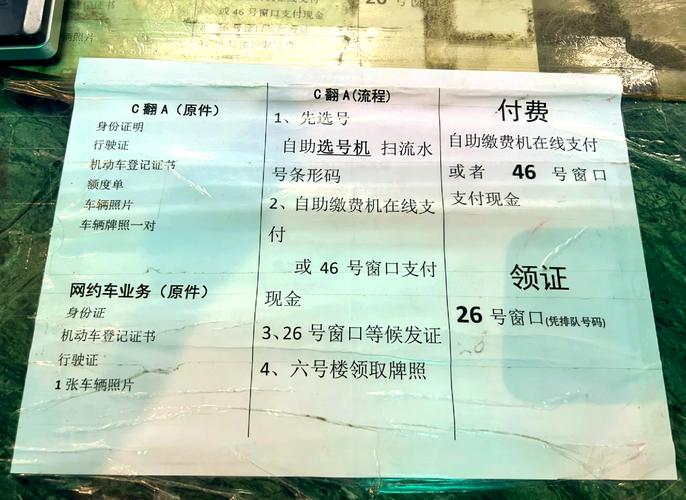 或 46 号窗口支付现金
26 号窗
C 翻 A（原件）
身份证明
行驶证
机动车登记证书
额度单
车辆照片
车辆牌照一对
网约车业务（原件）
身份证
机动车登记证书
行驶证
1 张车辆照片
C 翻 A(流程)
1、先选号
自助选号机 扫流水
号条形码
2、自助缴费机在线支
付
或 46 号窗口支付
现金
3、26 号窗口等候发证
4、六号楼领取牌照
付费
自助缴费机在线支付
或者 46 号窗口
支付现金
领证
26 号窗口(凭排队号码)
26